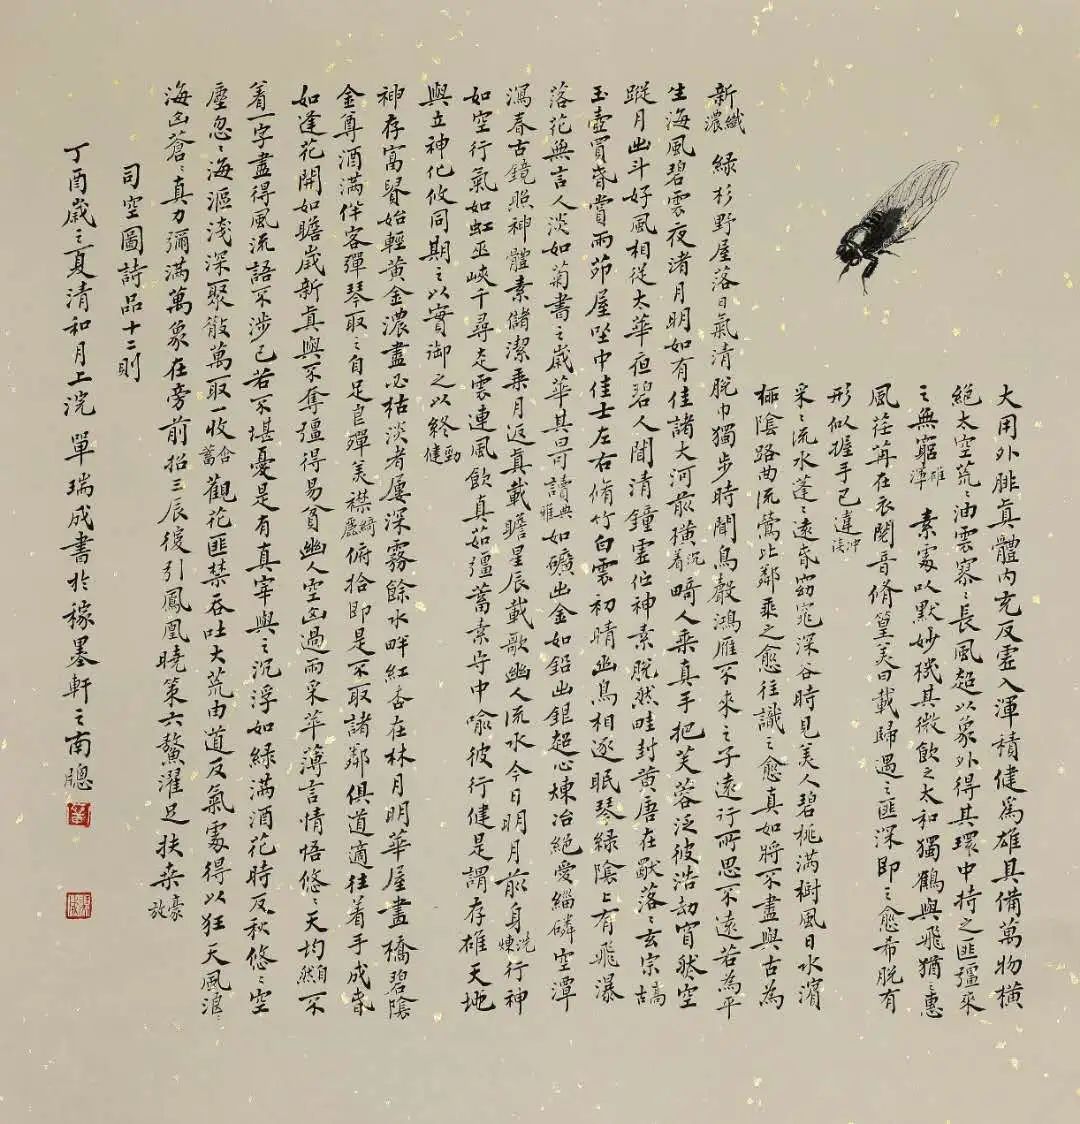 大用外腓真體內充反虛入渾積健為雄具備萬物橫
絕太空荒〻油雲寥〻長風超以象外得其環中持之匪彊來
之無窮 雄渾 素處以默妙機其微飲之太和獨鶴與飛猶之惠
風荏苒在衣閱音脩篁美曰載歸遇之匪深即之愈希脫有
形似握手已違 沖淡
采〻流水蓬〻遠春窈窕深谷時見美人碧桃滿樹風日水濱
柳陰路曲流鶯比鄰乘之愈往識之愈真如將不盡與古為
新 纖濃 綠杉野屋落日氣清脫巾獨步時聞鳥聲鴻雁不來之子遠行所思不遠若為平
生海風碧雲夜渚月明如有佳諸大河前橫 沉着 畸人乘真手把芙蓉泛彼浩劫窅然空
蹤月出斗好風相從太華夜碧人聞清鐘虛佇神素脫然畦封黃唐在獸落〻玄宗 高古
玉壺買春賞雨茆屋坐中佳士左右脩竹白雲初晴幽鳥相逐眠琴綠陰上有飛瀑
落花無言人淡如菊書之歲華其曰可讀 典雅 如礦出金如鉛出銀超心煉冶絕愛緇磷空潭
瀉春古鏡照神體素儲潔乘月返真載瞻星辰載歌幽人流水今日明月前身 洗煉 行神
如空行氣如虹巫峽千尋走雲連風飲真茹彊蓄素守中喻彼行健是謂存雄天地
與立神化攸同期之以實御之以終 勁健
神存富貴始輕黃金濃盡必枯淡者屢深霧餘水畔紅杏在林月明華屋畫橋碧陰
金尊酒滿伴客彈琴取之自足良殫美襟 綺麗 俯拾即是不取諸鄰俱道適往着手成春
如逢花開如瞻歲新真與不奪彊得易貧幽人空山過雨采苹薄言情悟悠〻天均 自然 不
着一字盡得風流語不涉己若不堪憂是有真宰與之沉浮如綠滿酒花時反秋悠〻空
塵忽〻海漚淺深聚散萬取一收 含蓄 觀花匪禁吞吐大荒由道反氣處得以狂天風浪〻
海山蒼〻真力彌滿萬象在旁前招三辰後引鳳凰曉策六鰲濯足扶桑 豪放
司空圖詩品十二則
丁酉歲之夏清和月上浣 單瑞成書於稼墨軒之南牕